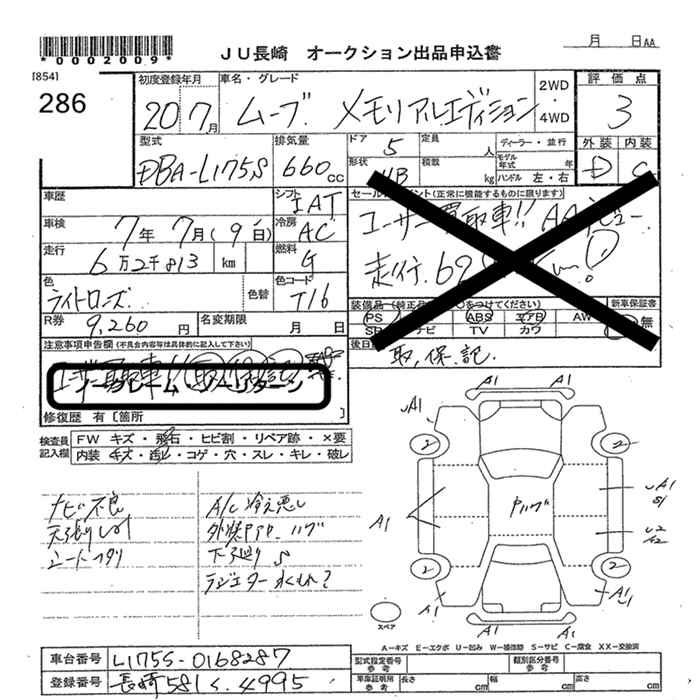 *0002009*
JU長崎 オークション出品申込書
月 日 AA
[854]
286
初度登録年月
20 7月
車名・グレード
ムーブ メモリアルエディション
2WD
・
4WD
評価点
3
外装 内装
D C
型式
DBA-L175S
排気量
660cc
ドア 5
定員 人
形状
積載 kg
ディーラー・並行
モデル年式 年
ハンドル 左・右
車歴
シフト
IAT
車検
7年7月(9日)
冷房
AC
走行
6万2千813 km
燃料
G
色
ライトローズ
色替
色コード
T16
R券
9,260円
名変期限 月 日
セールスポイント(正常に機能するものに限ります)
ユーザー買取車!! AA
走行.69
装備品(純正
をつけてください)
新車保証書
PS ABS エアB AW
ナビ TV カワ
無
後日
取,保,記.
注意事項申告欄(不具合内容等は具体的に記入して下さい)
ノークレーム・ノーリターン
修復歴 有[箇所 ]
検査員記入欄
FW キズ・飛石・ヒビ割・リペア跡・×要
内装 キズ・汚れ・コゲ・穴・スレ・キレ・破レ
ナビ不良
天張りしみ
シートコゲ
A/C冷え悪し
下廻りS
ラジエター水もれ?
A1 A1
A1
2 2
A1
Pハゲ
2 2
A1 A1
スペア
A-キズ E-エクボ U-凹み W-補修跡 S-サビ C-腐食 XX-交換済
車台番号 L175S-0168287
登録番号 長崎581く.4995
型式指定番号 参考
類別区分番号 参考
車庫証明用 参考
長さ cm
幅 cm
高さ cm